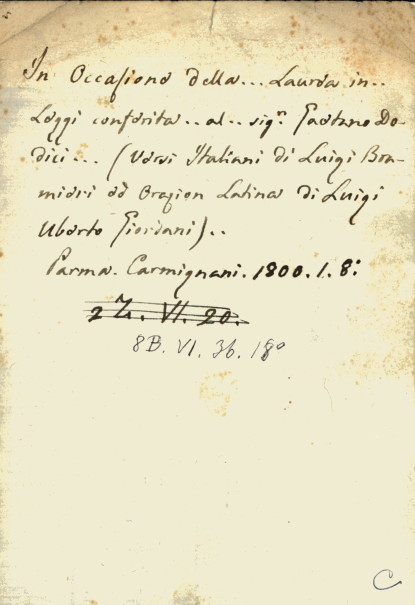 In Occasione della... Laurea in..
Leggi conferita.. al.. sigr. Gaetano Do-
dici... (Versi Italiani di Luigi Bra-
mieri ed Orazion Latina di Luigi
Uberto Giordani)..
Parma. Carmignani. 1800. 1. 8:
2 Z. VI. 20.
8B. VI. 36. 18º
C